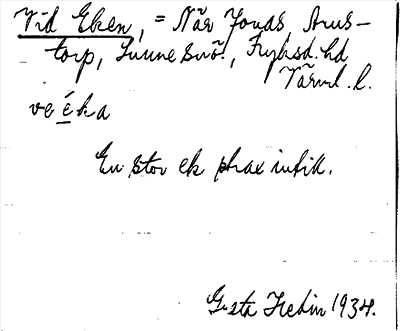 Vid Eken, = När Jonas, Arus-
torp, Sunne snö., Fryksd. hd
Värml. l.
ve éka
En stor ek strax intill.
Gösta Hedin 1934.